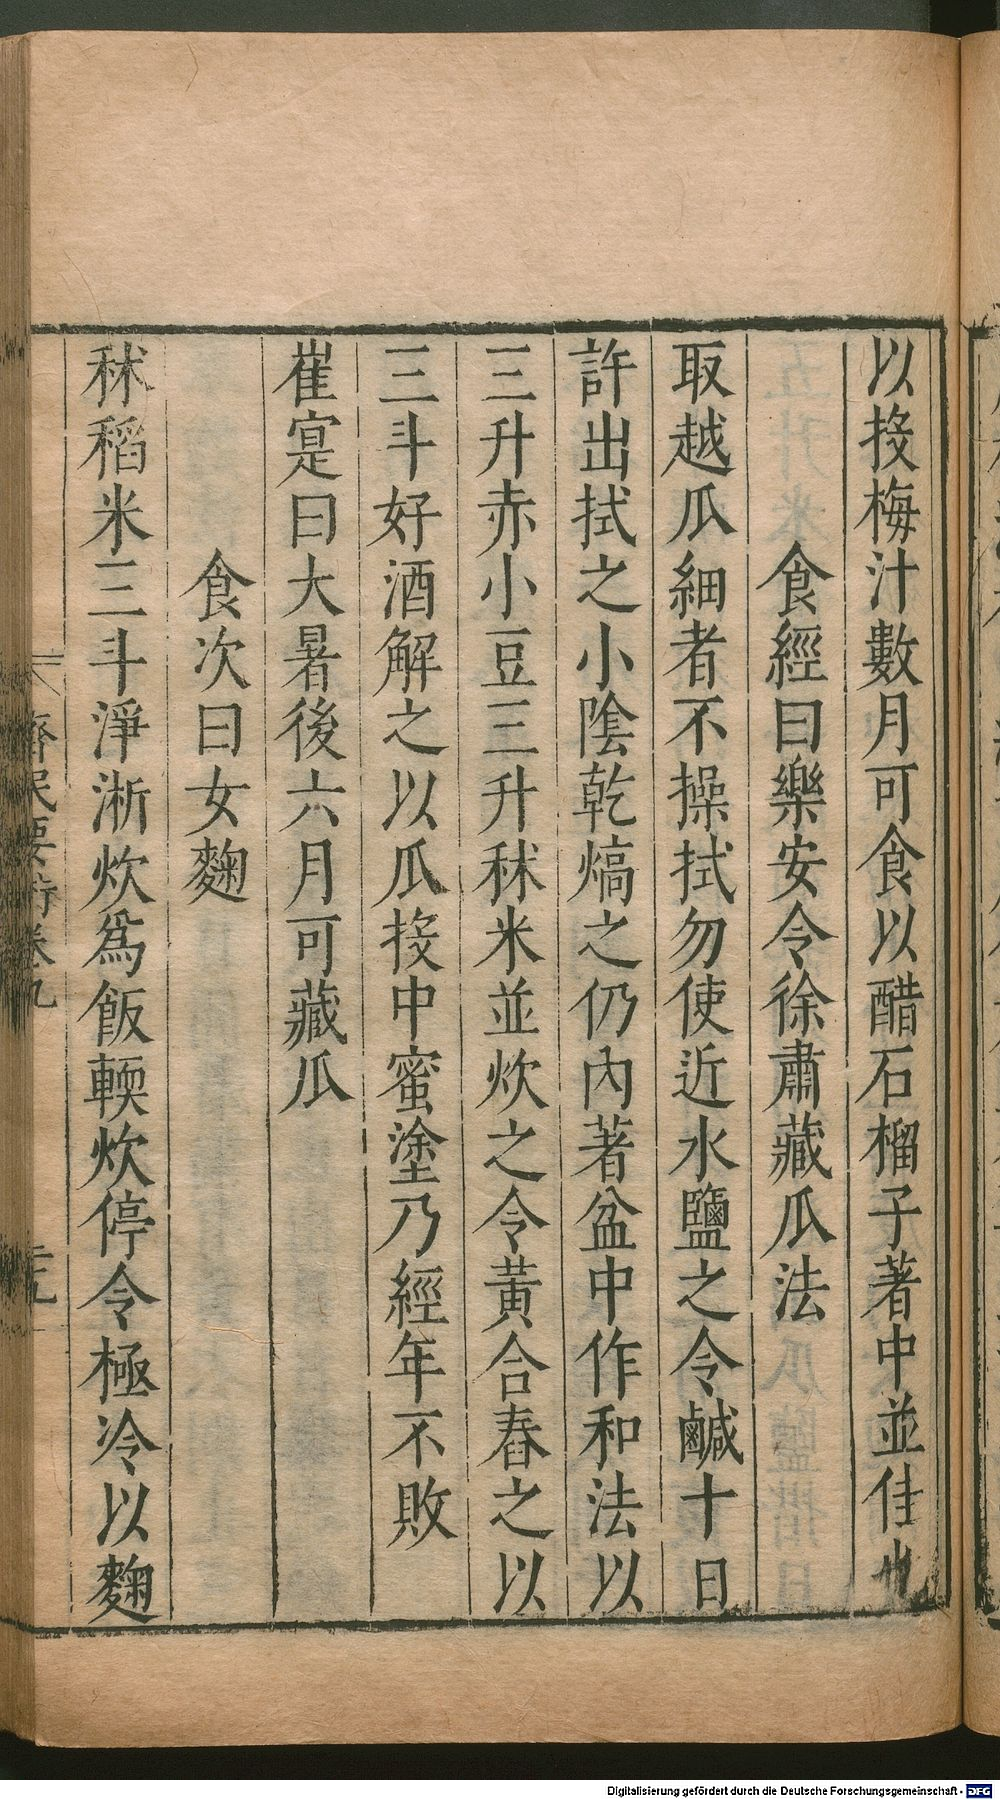 以挼梅汁數月可食以醋石榴子著中並佳也
食經曰樂安令徐肅藏瓜法
取越瓜細者不操拭勿使近水鹽之令鹹十日
許出拭之小陰乾熇之仍內著盆中作和法以
三升赤小豆三升秫米並炊之令黃合舂之以
三斗好酒解之以瓜挼中蜜塗乃經年不敗
崔寔曰大暑後六月可藏瓜
食次曰女麴
秫稻米三斗淨淅炊爲飯輭炊停令極冷以麴
齊民要術卷九
Digitalisierung gefördert durch die Deutsche Forschungsgemeinschaft - DFG